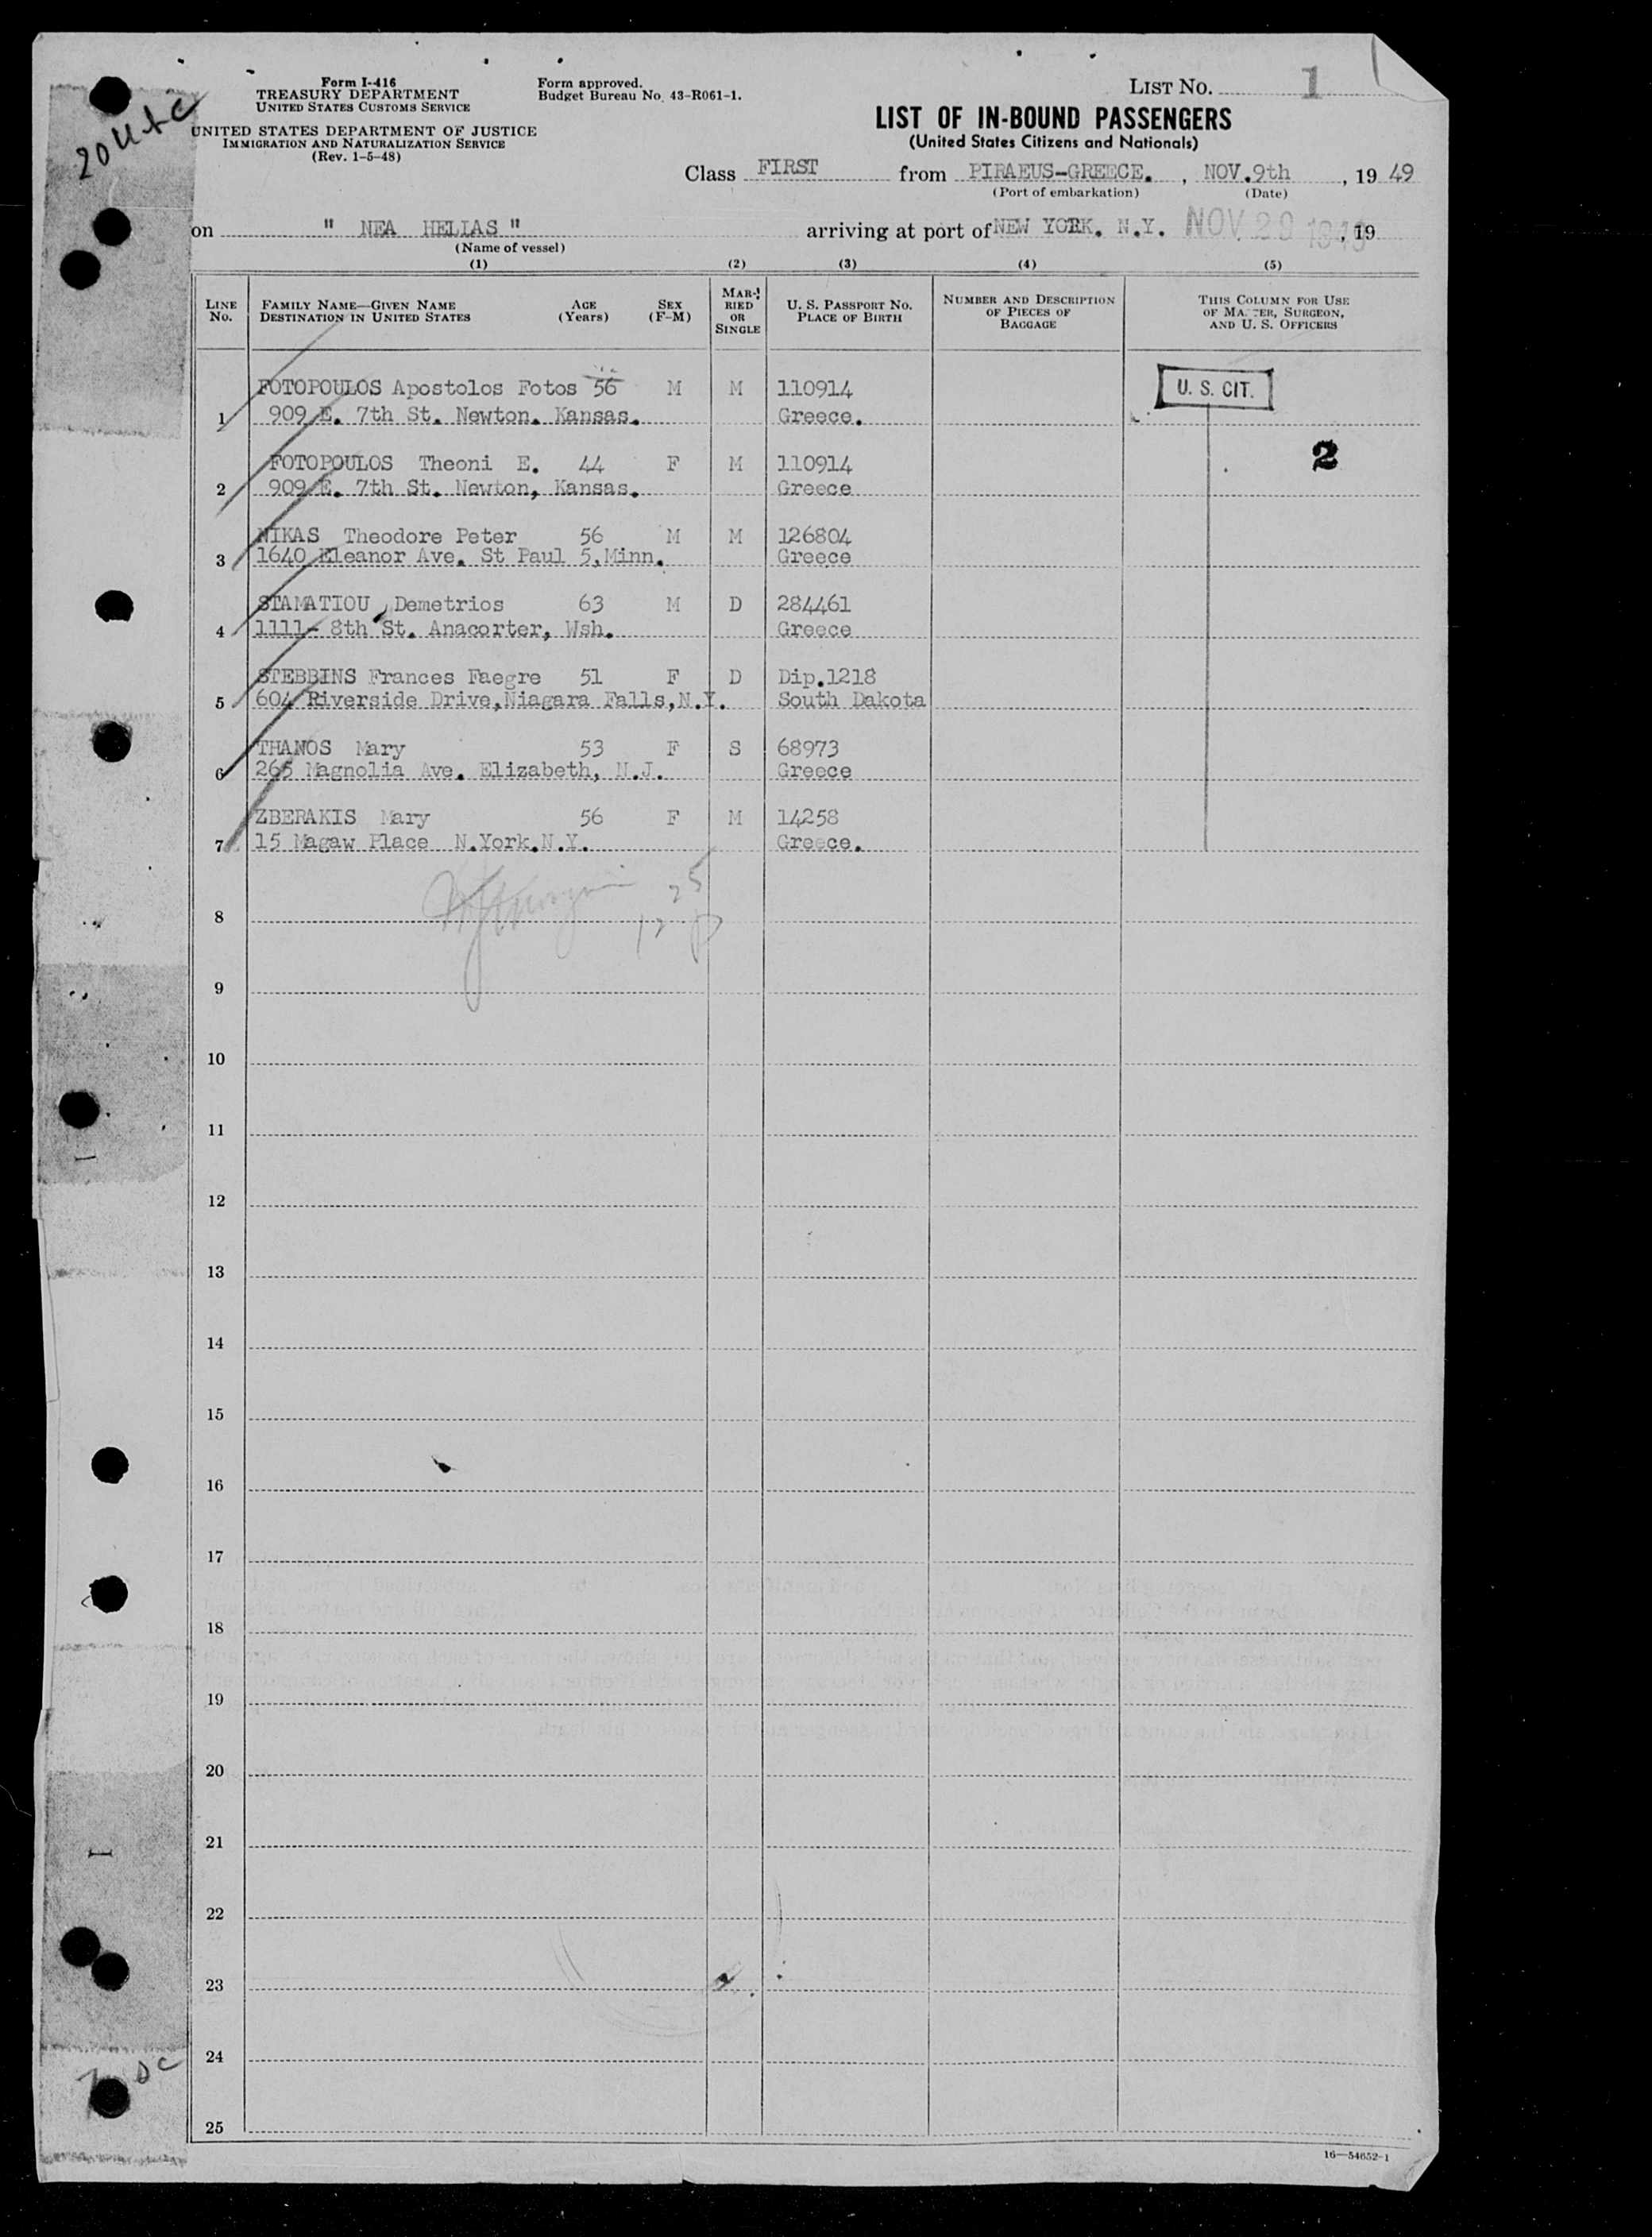 Form I-416
TREASURY DEPARTMENT
UNITED STATES CUSTOMS SERVICE
UNITED STATES DEPARTMENT OF JUSTICE
IMMIGRATION AND NATURALIZATION SERVICE
(Rev. 1-5-48)
Form approved.
Budget Bureau No. 43-R061-1.
LIST NO. 1
LIST OF IN-BOUND PASSENGERS
(United States Citizens and Nationals)
Class FIRST from PIRAEUS-GREECE. , NOV.9th , 19 49
(Port of embarkation) (Date)
on " NEA HELIAS " arriving at port of NEW YORK. N.Y. NOV 29 1949 , 19
(Name of vessel)
(1) (2) (3) (4) (5)
LINE NO. FAMILY NAME—GIVEN NAME DESTINATION IN UNITED STATES AGE (Years) SEX (F-M) MARRIED OR SINGLE U. S. PASSPORT NO. PLACE OF BIRTH NUMBER AND DESCRIPTION OF PIECES OF BAGGAGE THIS COLUMN FOR USE OF MASTER, SURGEON, AND U. S. OFFICERS
FOTOPOULOS Apostolos Fotos 56 M M 110914 U. S. CIT.
1 909 E. 7th St. Newton. Kansas. Greece.
FOTOPOULOS Theoni E. 44 F M 110914 2
2 909 E. 7th St. Newton, Kansas. Greece
NIKAS Theodore Peter 56 M M 126804
3 1640 Eleanor Ave. St Paul 5,Minn. Greece
STAMATIOU Demetrios 63 M D 284461
4 1111- 8th St. Anacorter, Wsh. Greece
STEBBINS Frances Faegre 51 F D Dip.1218
5 604 Riverside Drive,Niagara Falls,N.Y. South Dakota
THANOS Mary 53 F S 68973
6 265 Magnolia Ave. Elizabeth, N.J. Greece
ZBERAKIS Mary 56 F M 14258
7 15 Magaw Place N.York.N.Y. Greece.
8
9
10
11
12
13
14
15
16
17
18
19
20
21
22
23
24
25
16—54652-1